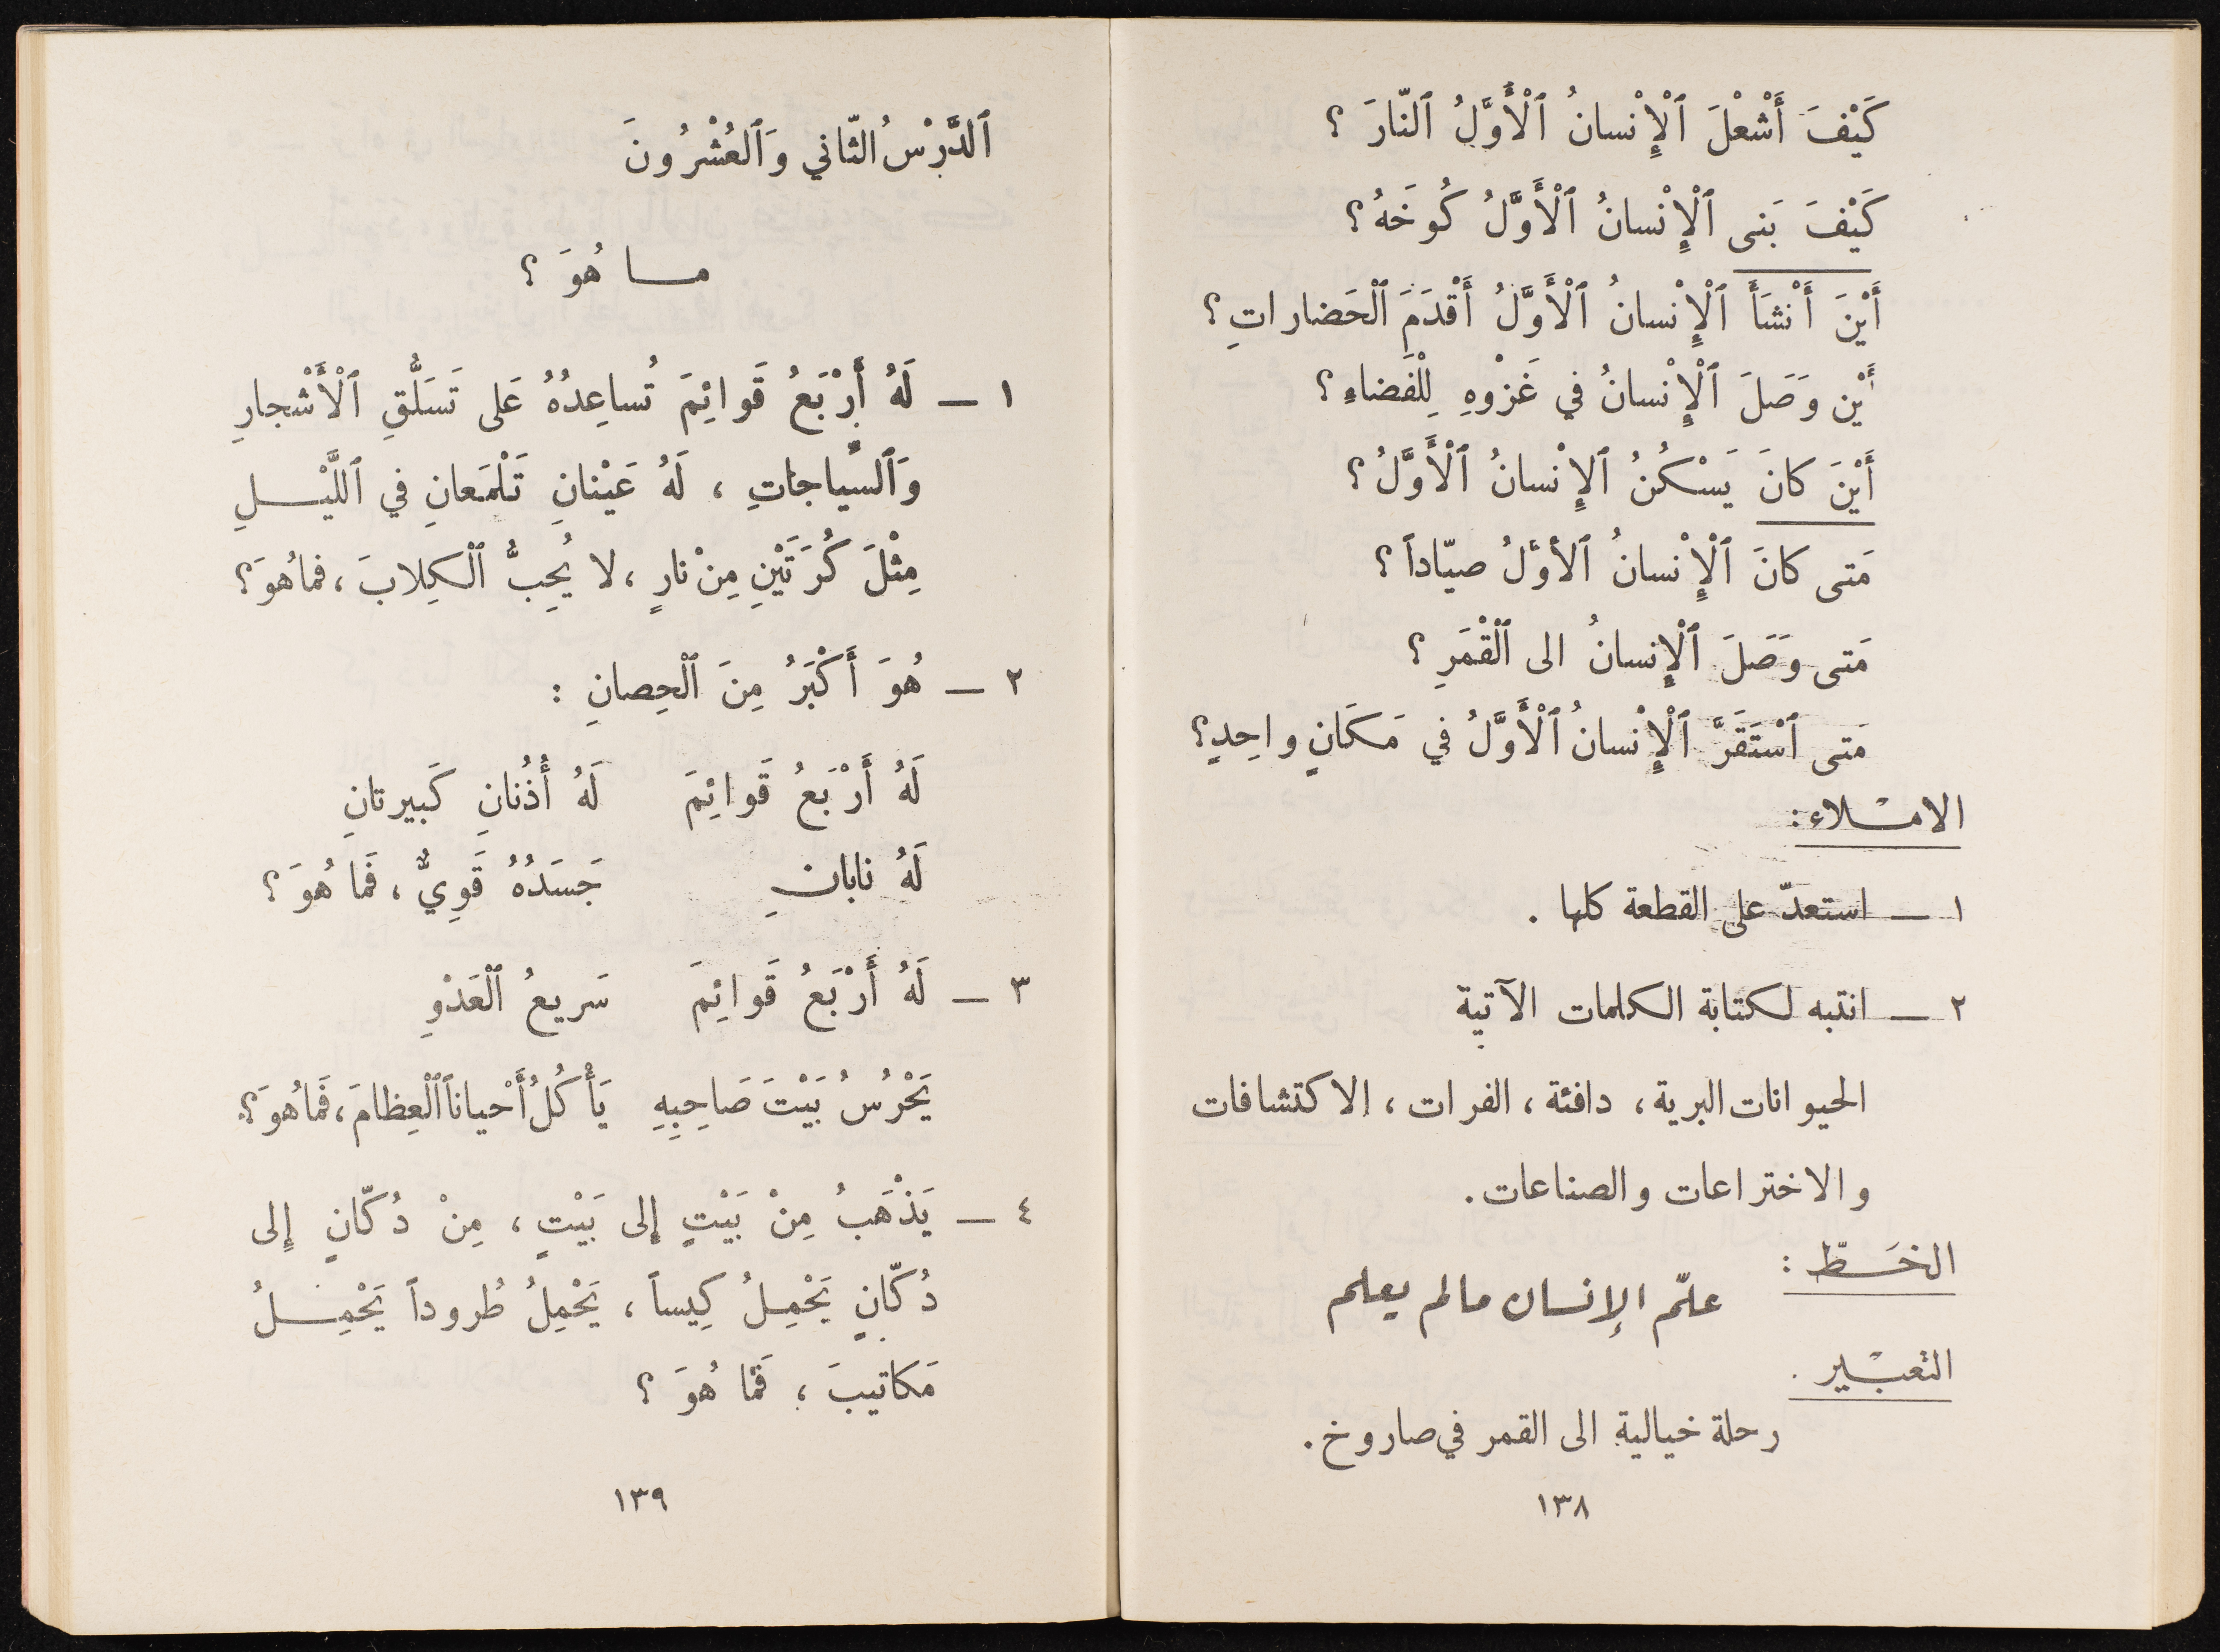 كَيْفَ أَشْعْلَ ٱلْإِنْسانُ ٱلْأَوَّلُ ٱلنّارَ ؟
كَيْفَ بَنى ٱلْإِنْسانُ ٱلْأَوَّلُ كُوخَهُ؟
أَيْنَ أَنْشَأَ ٱلْإِنْسانُ ٱلْأَوَّلُ أَقْدَمَ ٱلْحَضاراتِ؟
أَيْن وَصَلَ ٱلْإِنْسانُ في غَزْوهِ لِلْفَضاءِ؟
أَيْنَ كانَ يَسْكُنُ ٱلإِنْسانُ ٱلْأَوَّلُ؟
مَتى كانَ ٱلْإِنْسانُ ٱلأوَّلُ صيّاداً؟
مَتى وَصَلَ ٱلْإِنسانُ الى ٱلْقْمَرِ ؟
مَتى ٱسْتَقَرَّ ٱلْإِنْسانُ ٱلْأَوَّلُ في مَكَانٍ واحِدٍ؟
الامْلاء:
١ — استعدّ على القطعة كلها .
٢ — انتبه لكتابة الكلمات الآتية
الحيوانات البرية، دافئة، الفرات، الاكتشافات
والاختراعات والصناعات.
الخَطّ :
علّم الإنسان مالم يعلم
التعبْير .
رحلة خيالية الى القمر في صاروخ.
١٣٨
ٱلدَّرْسُ الثّاني وَٱلعُشْرُونَ
ما هُوَ ؟
١ — لَهُ أَرْبَعُ قَوائِمَ تُساعِدُهُ عَلى تَسَلُّقِ ٱلْأَشْجارِ
وَٱلسِّياجاتِ ، لَهُ عَيْنانِ تَلْمَعانِ في ٱللَّيْلِ
مِثْلَ كُرَتَيْنِ مِنْ نارٍ ، لا يُحِبُّ ٱلْكِلابَ ، فماهُوَ؟
٢ — هُوَ أَكْبَرُ مِنَ ٱلْحِصانِ :
لَهُ أَرْبَعُ قَوائِمَ لَهُ أُذُنانِ كَبيرتانِ
لَهُ نابانِ جَسَدُهُ قَوِيٌّ ، فَما هُوَ ؟
٣ — لَهُ أَرْبَعُ قَوائِمَ سَريعُ ٱلْعَدْوِ
يَحْرُسُ بَيْتَ صَاحِبِهِ يَأْكُلُ أَحْياناً ٱلْعِظامَ ، فَماهُوَ؟
٤ — يَذْهَبُ مِنْ بَيْتٍ إِلى بَيْتٍ ، مِنْ دُكّانٍ إِلى
دُكّانٍ يَحْمِلُ كِيساً ، يَحْمِلُ طُروداً يَحْمِلُ
مَكاتيبَ ، فَمْا هُوَ ؟
١٣٩